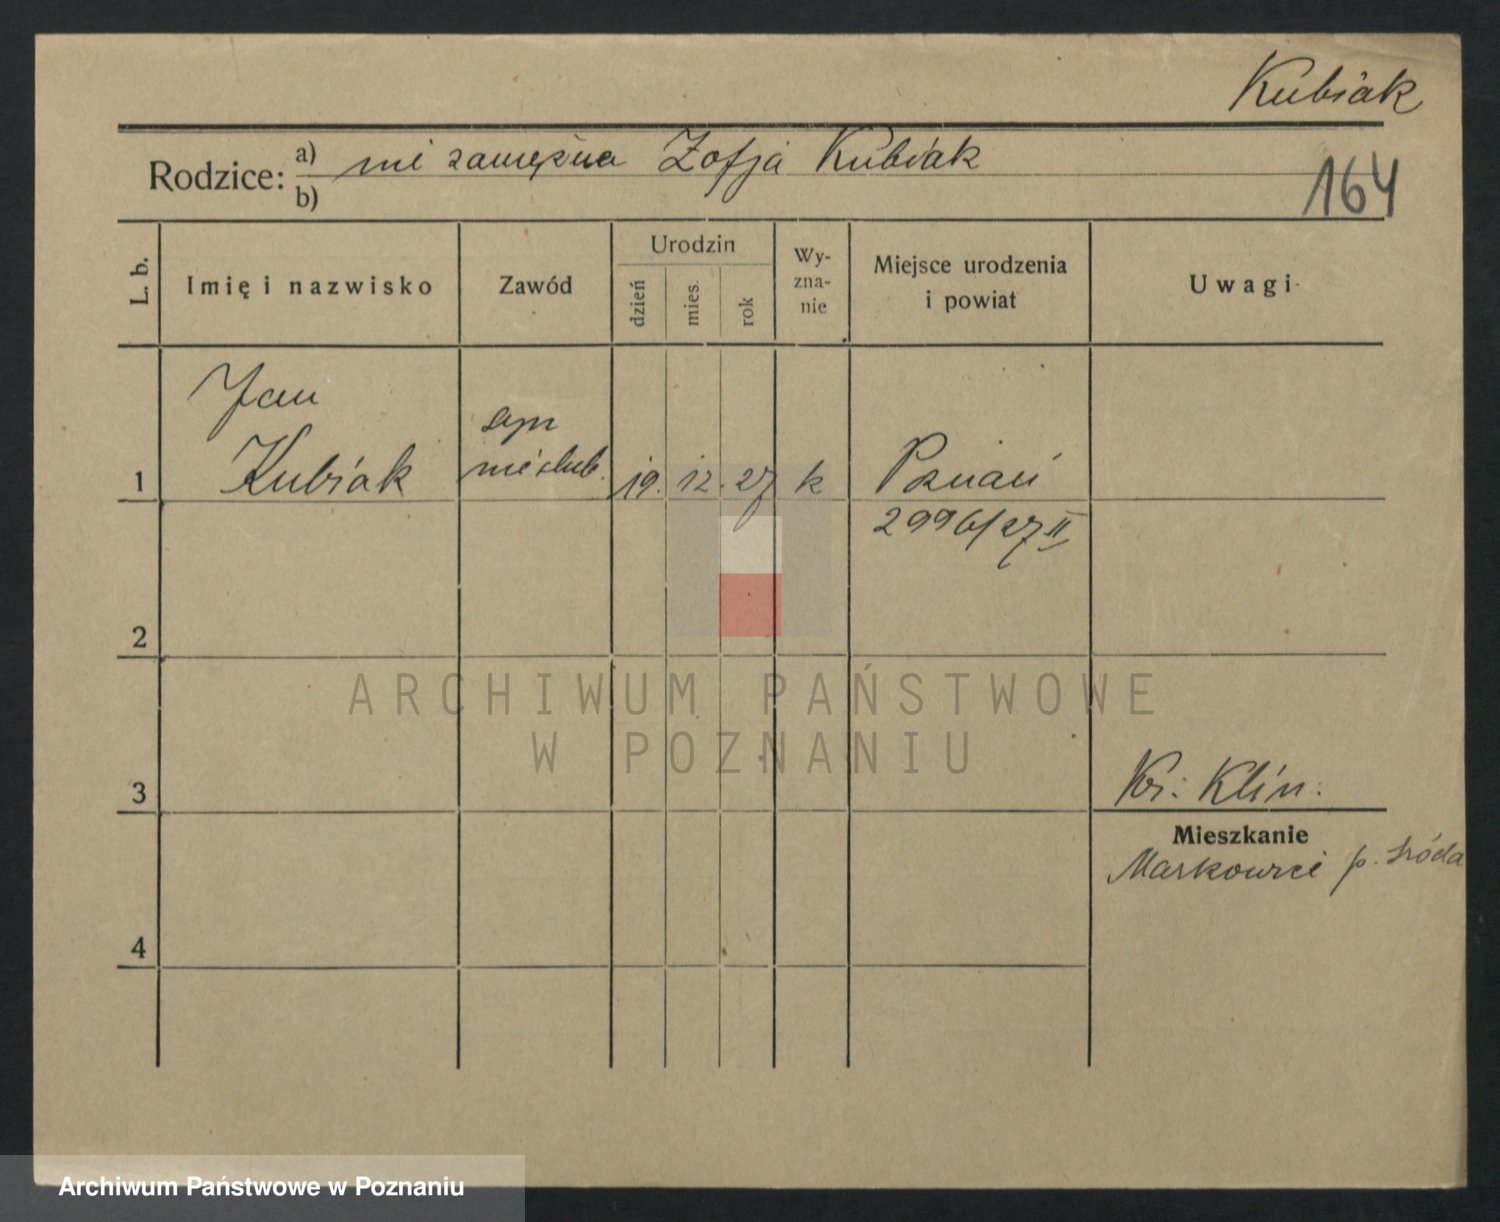 Kubiak
Rodzice: a) niezamężna Zofja Kubiak
b)
164
L. b.
Imię i nazwisko
Zawód
Urodzin
dzień
mies.
rok
Wy-
zna-
nie
Miejsce urodzenia
i powiat
Uwagi
Jan
Kubiak
syn
nieślub.
1
19. 12. 27
k
Poznań
2996/27 II
2
ARCHIWUM PAŃSTWOWE
W POZNANIU
3
Kr. Klin.
Mieszkanie
Markowice p. Środa
4
Archiwum Państwowe w Poznaniu